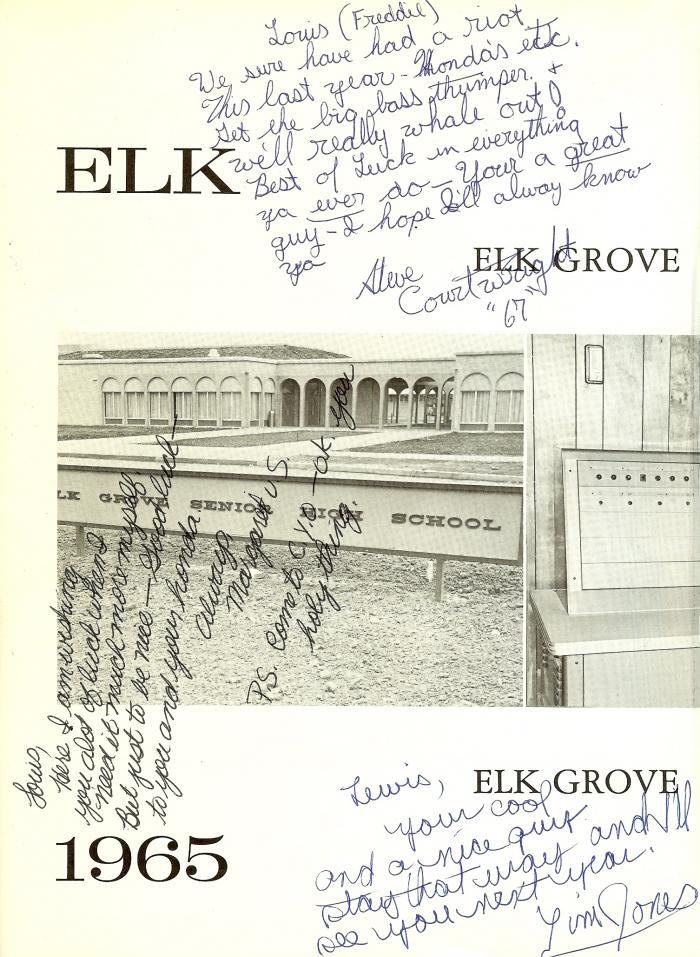 Louis (Freddie)
We sure have had a riot
This last year - Honda's etc.
Get the big bass thumper. +
we'll really whale out!
Best of Luck in everything
ya ever do - Your a great
guy - I hope I'll alway know
ya
Steve
Courtwright
"67"
ELK
ELK GROVE
LK GROVE SENIOR HIGH SCHOOL
Louis,
here I am wishing
you alot of luck when I
need it much more myself.
But just to be nice - Good luck -
to you and your honda
always
Margaret S.
P.S. Come to CYO - ok you
holy thing.
ELK GROVE
1965
Lewis,
your cool
and a nice guy
stay that way and I'll
see you next year.
Jim Jones